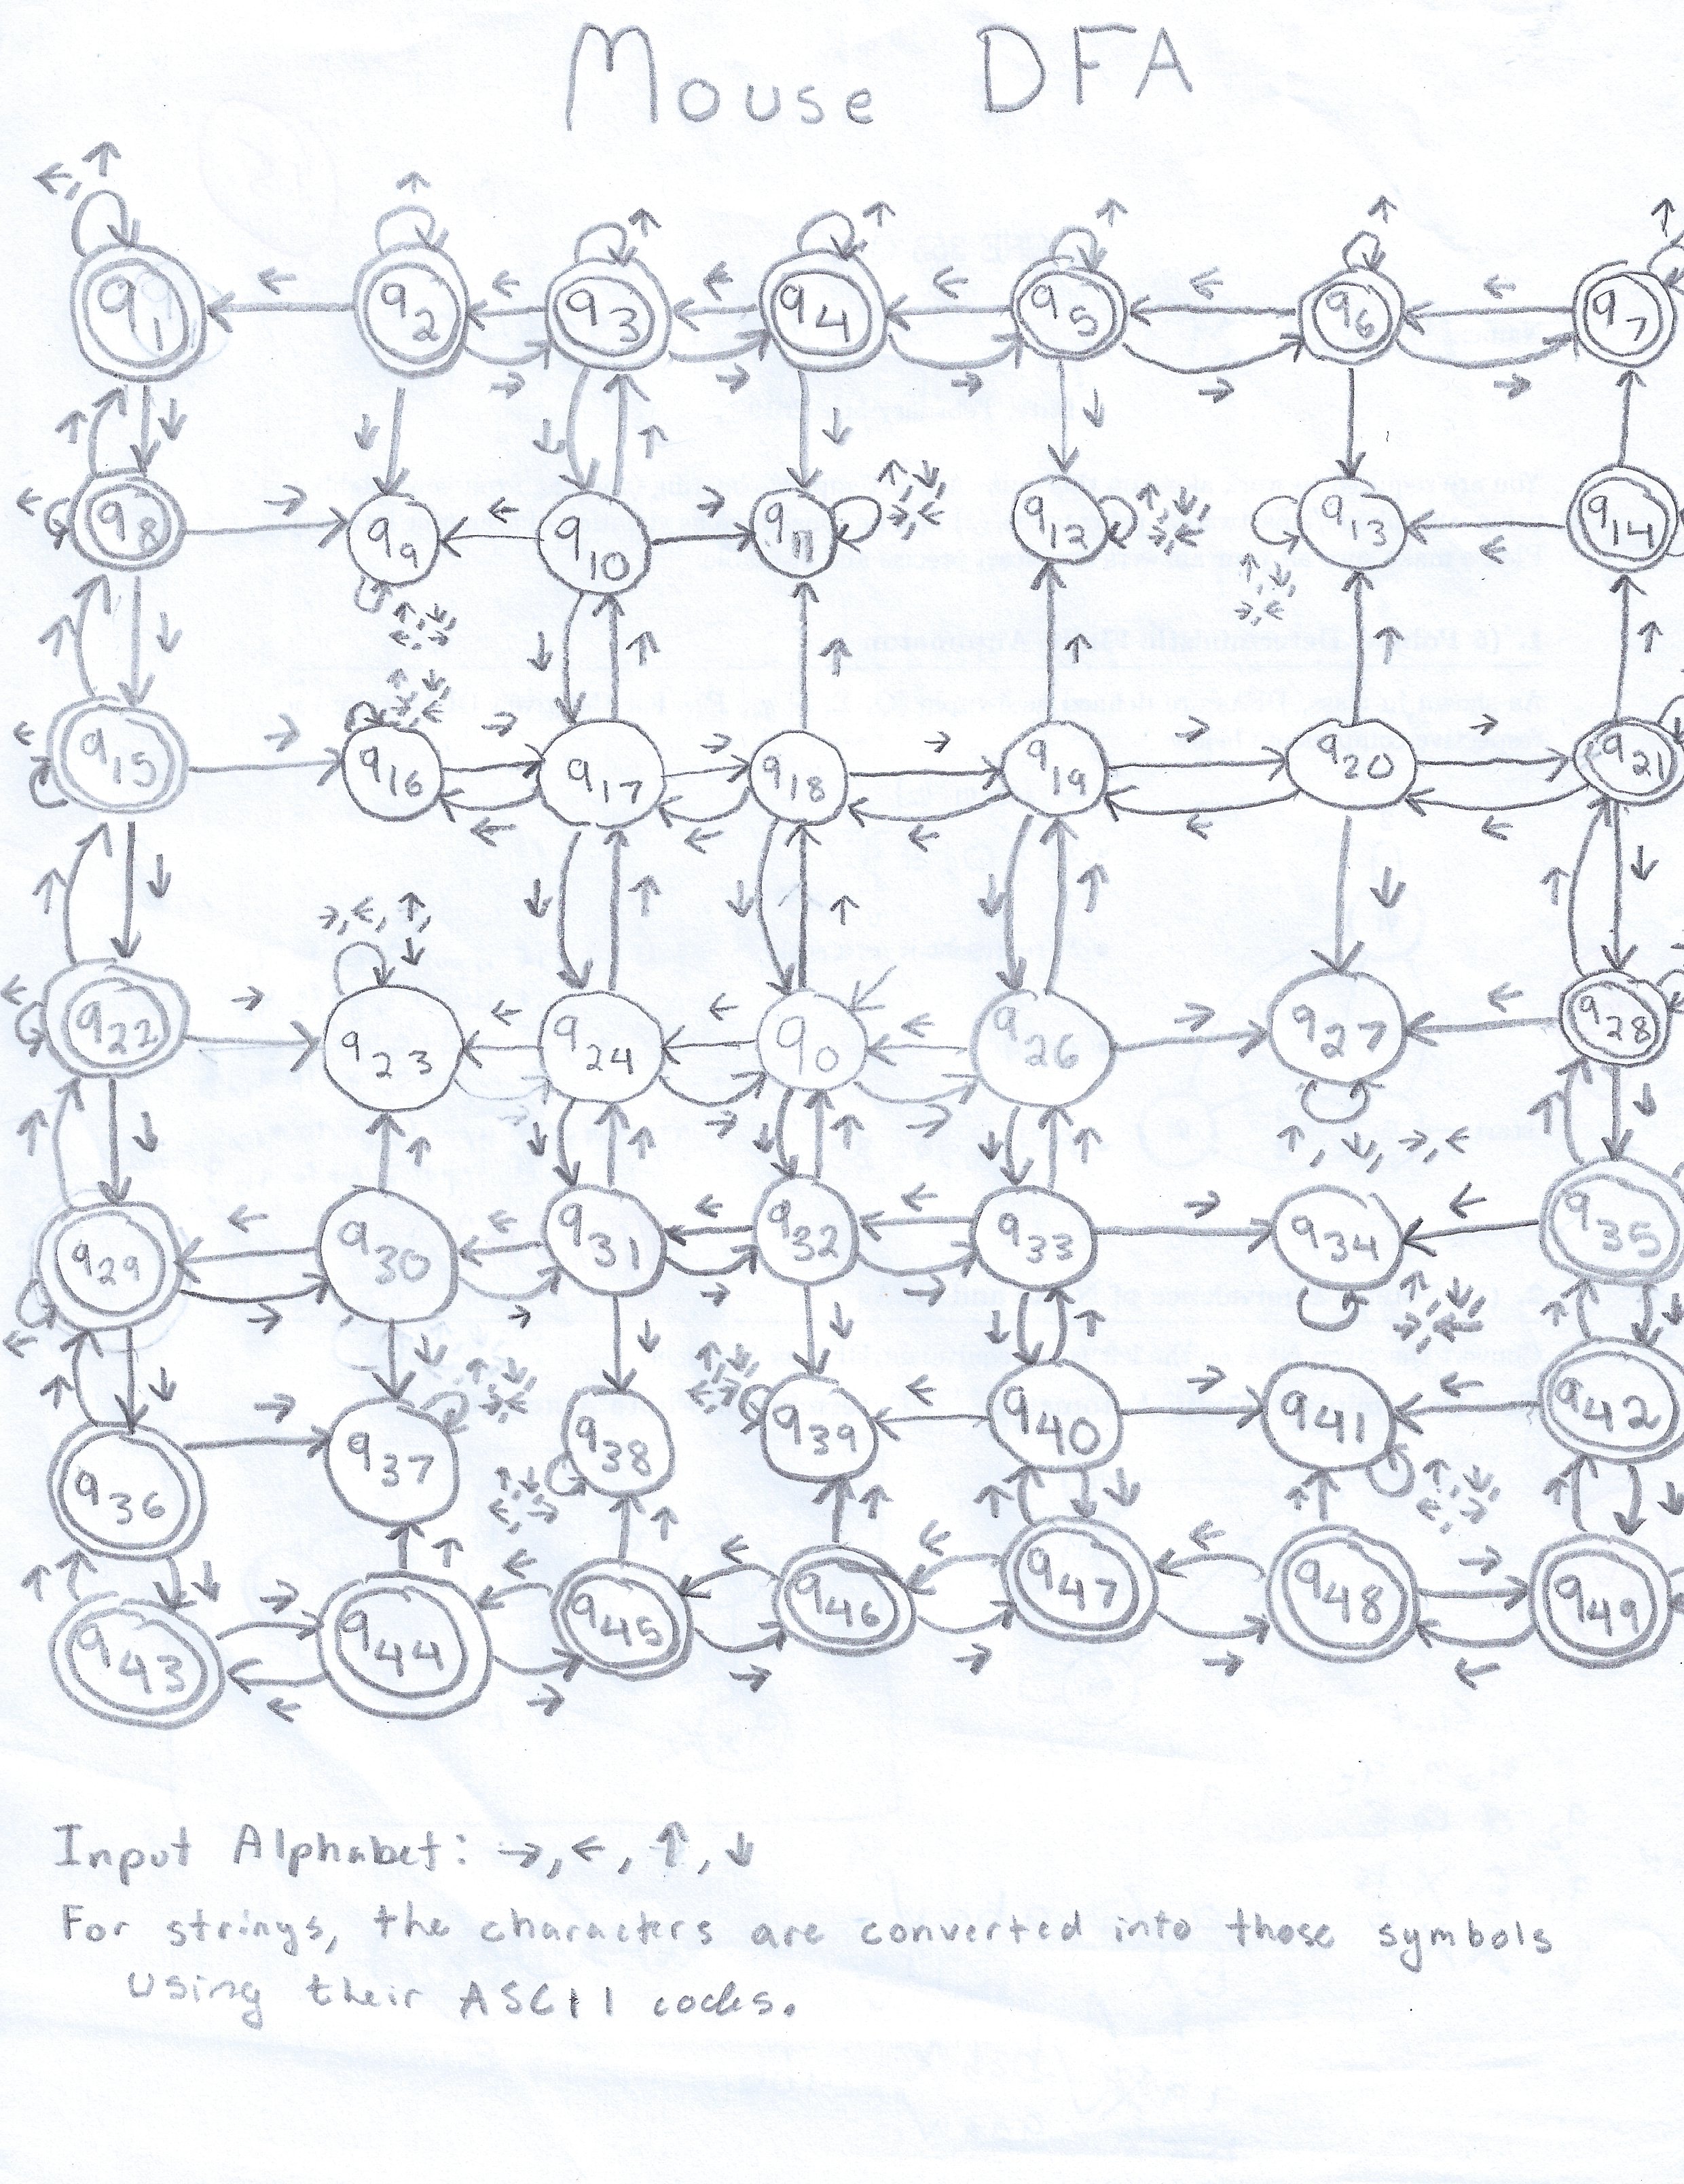 Mouse DFA
←, ↑ ↑ ↑ ↑ ↑ ↑ ↑
q1 ← q2 ← q3 ← q4 ← q5 ← q6 ← q7
→ → → → →
↑ ↓ ↓ ↓ ↑ ↓ ↓
← q8 → q9 ← q10 → q11 ↑, ↓, →, ← q12 ↑, ↓, →, ← q13 ← q14
↑, ↓, ←, → ↑, ↓, →, ←
↑ ↓ ↓ ↑ ↑ ↑ ↑ ↑
↑, ↓, →, ←
← q15 → q16 → q17 → q18 → q19 → q20 → q21
← ← ← ← ←
↑ ↓ ↓ ↑ ↓ ↑ ↓ ↑ ↓ ↑ ↓
→, ←, ↑, ↓
← q22 → q23 ← q24 ← q0 ← q26 → q27 ← q28
→ → →
↑ ↓ ↑ ↓ ↑ ↓ ↑ ↓ ↑ ↑, ↓, →, ← ↑ ↓
q29 ← q30 ← q31 ← q32 ← q33 → q34 ← q35
← → → → → ↑, ↓, →, ←
↑ ↓ ↓ ↓ ↓ ↓ ↑ ↑ ↓
q36 → q37 ↑, ↓, →, ← q38 ↑, ↓, ←, → q39 ← q40 → q41 ← q42
↑, ↓, ←, → ↑, ↓, ←, →
↑ ↓ ↑ ↑ ↑ ↑ ↓ ↑ ↑ ↓
q43 → q44 ← q45 ← q46 ← q47 ← q48 → q49
← → → → → ←
Input Alphabet: →, ←, ↑, ↓
For strings, the characters are converted into those symbols
using their ASCII codes.